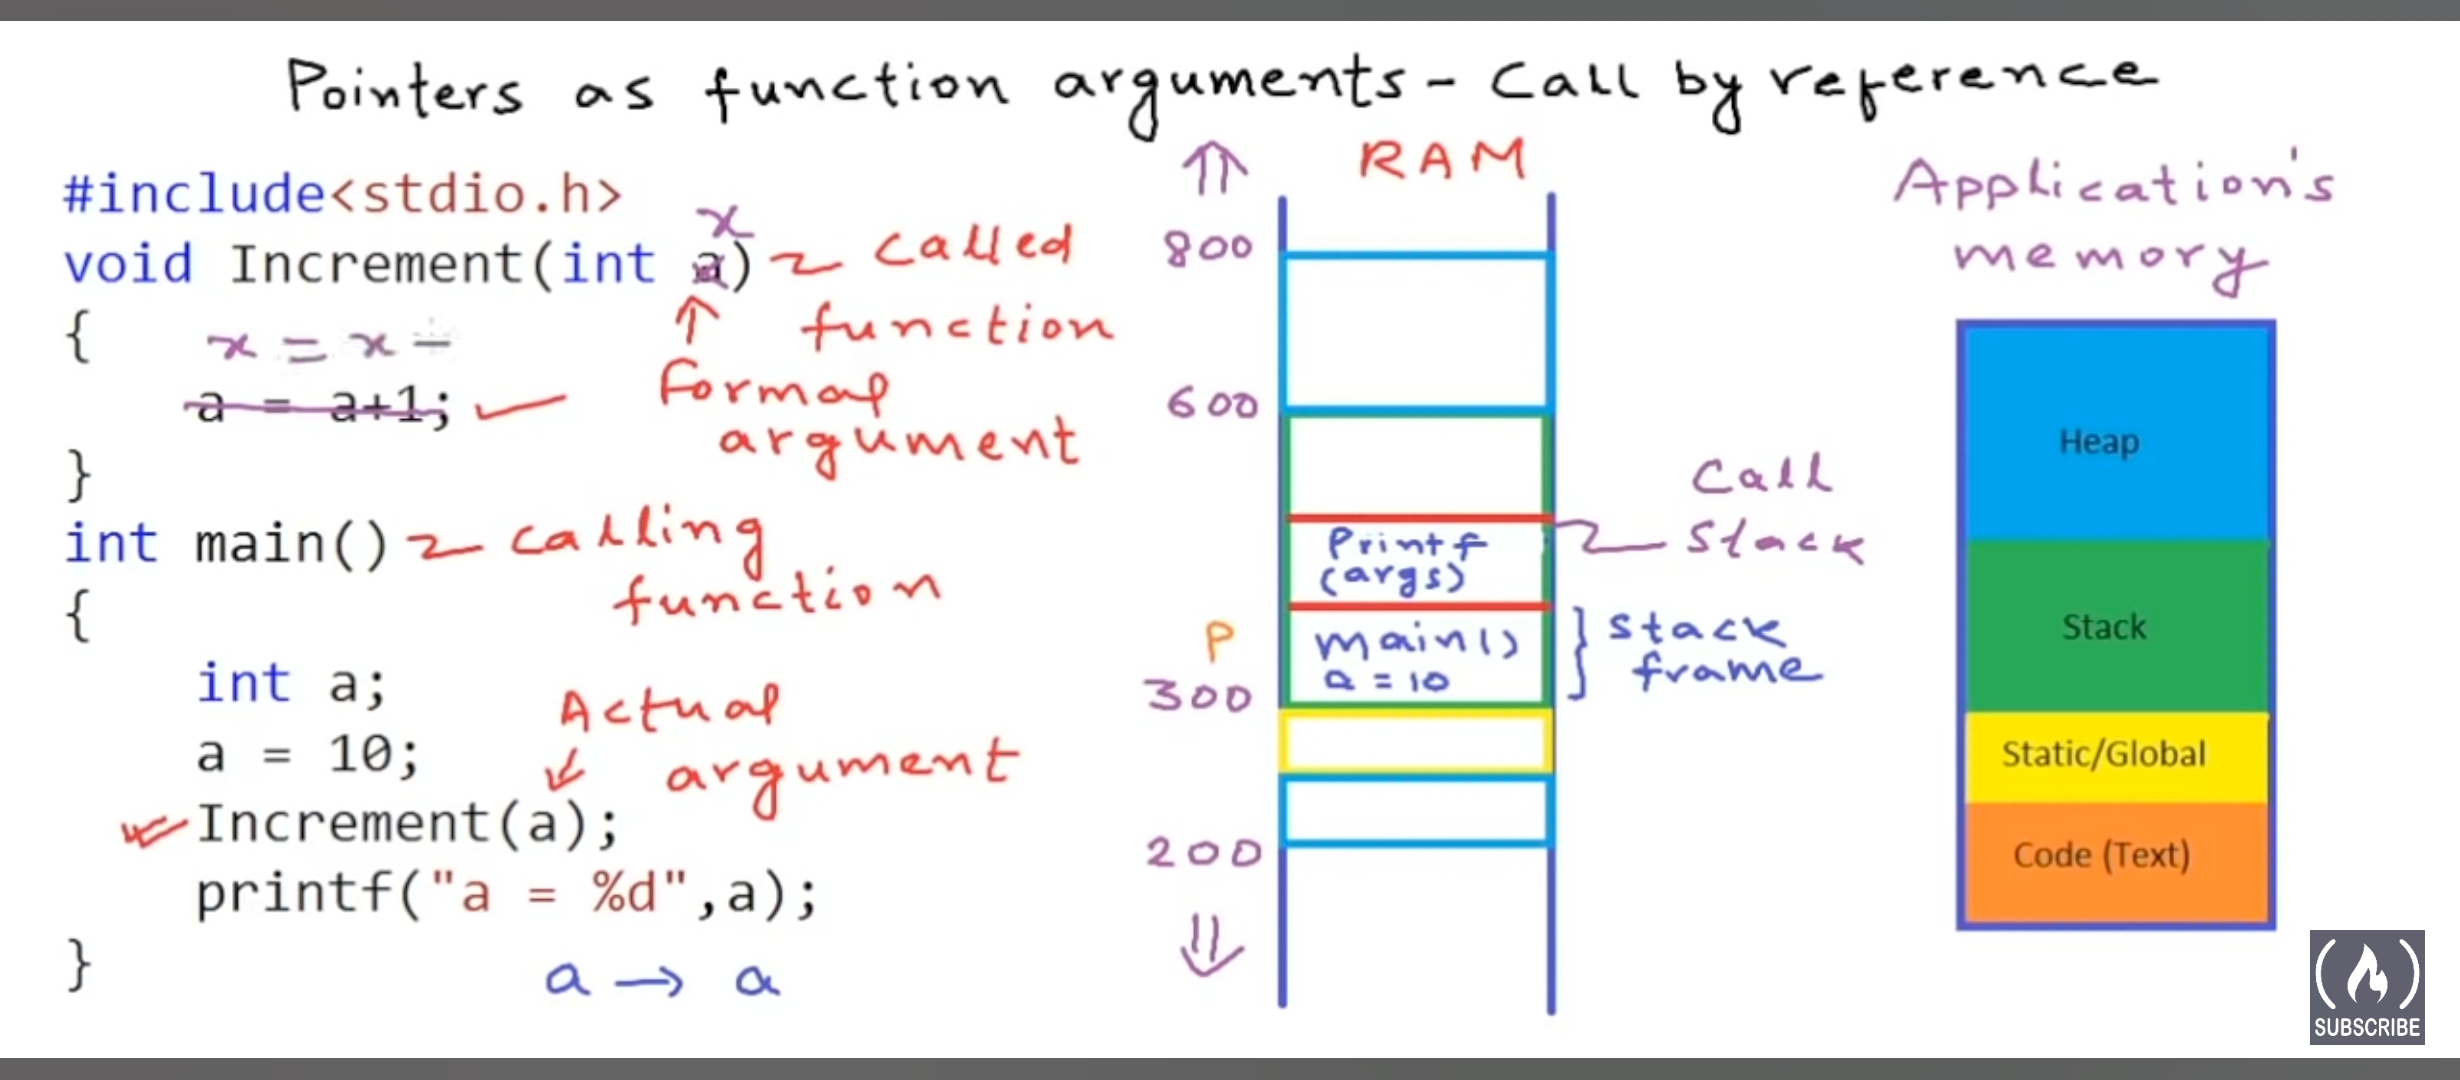 Pointers as function arguments - Call by reference
#include<stdio.h>
x
void Increment(int a)
called
function
{
x = x -
a = a+1;
↑
Formal
argument
}
int main()
calling
function
{
int a;
a = 10;
Actual
argument
Increment(a);
printf("a = %d",a);
}
a → a
RAM
800
600
Printf
(args)
P
main()
a = 10
300
200
Call
Stack
stack
frame
Application's
memory
Heap
Stack
Static/Global
Code (Text)
SUBSCRIBE